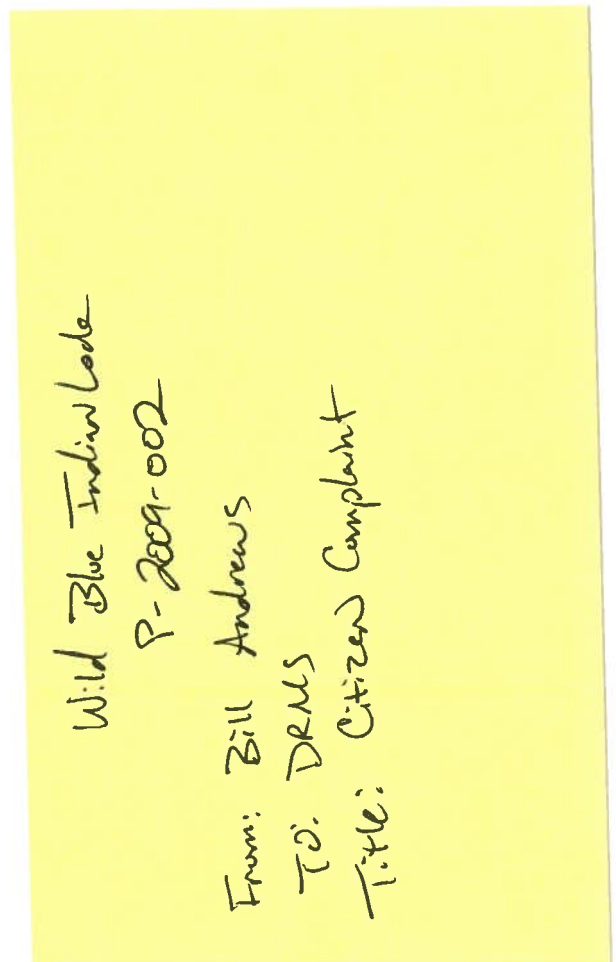 Wild Blue Indian Lode
P-2009-002
From: Bill Andrews
To: DRMS
Title: Citizen Complaint